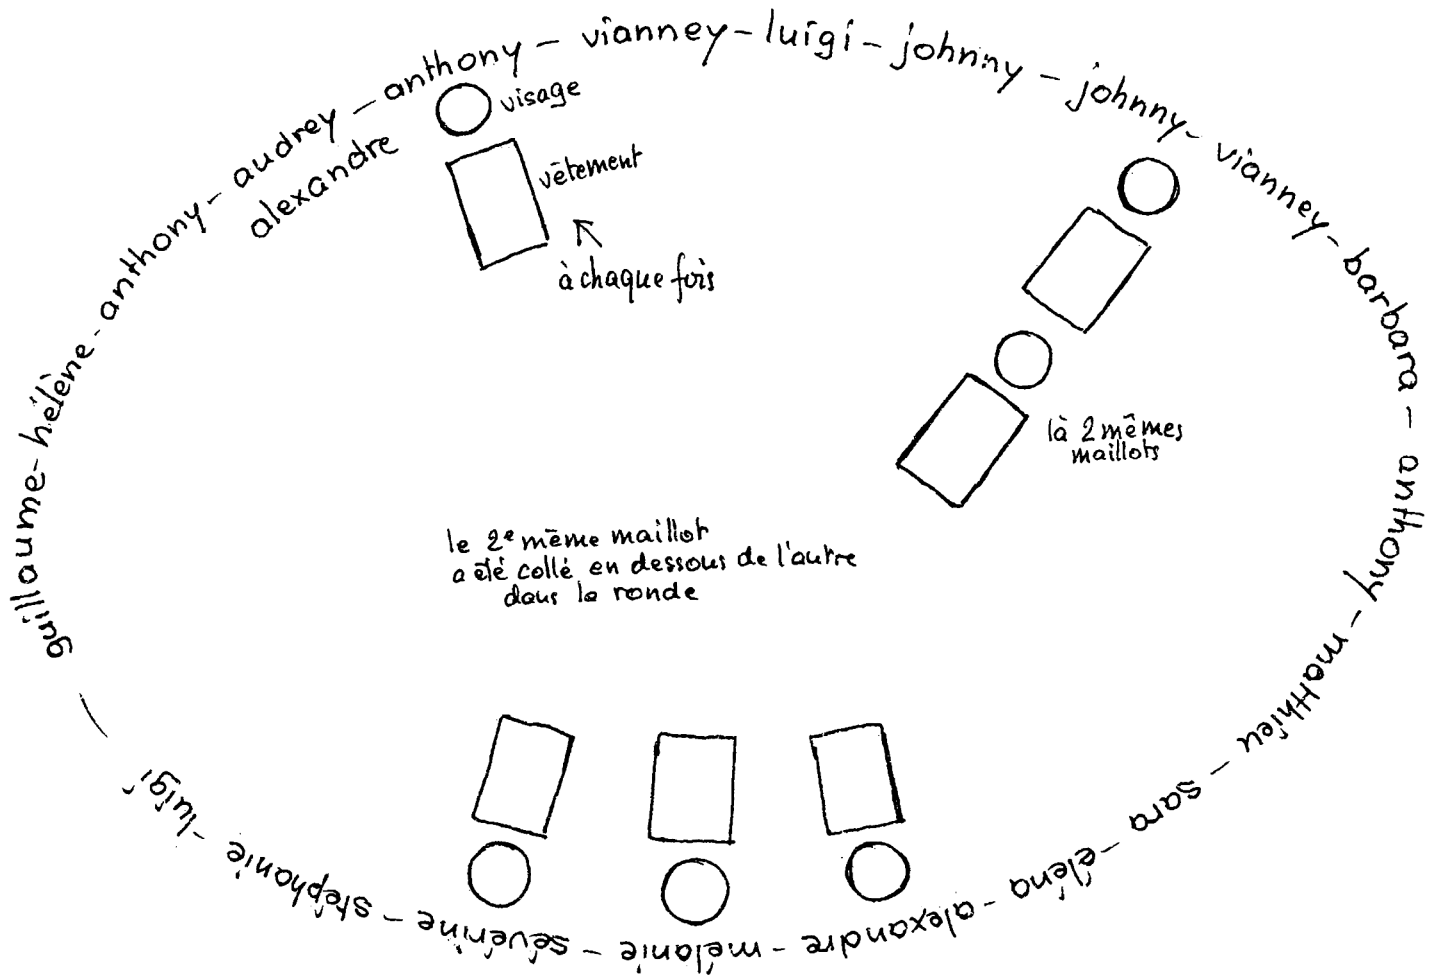 guillaume - hélène - anthony - audrey - anthony - vianney - luigi - johnny - johnny - vianney - barbara - anthony - matthieu - sara - éléna - alexandre - mélanie - séverine - stéphanie - luigi -
alexandre
visage
vêtement
à chaque fois
là 2 mêmes
maillots
le 2e même maillot
a été collé en dessous de l'autre
dans la ronde